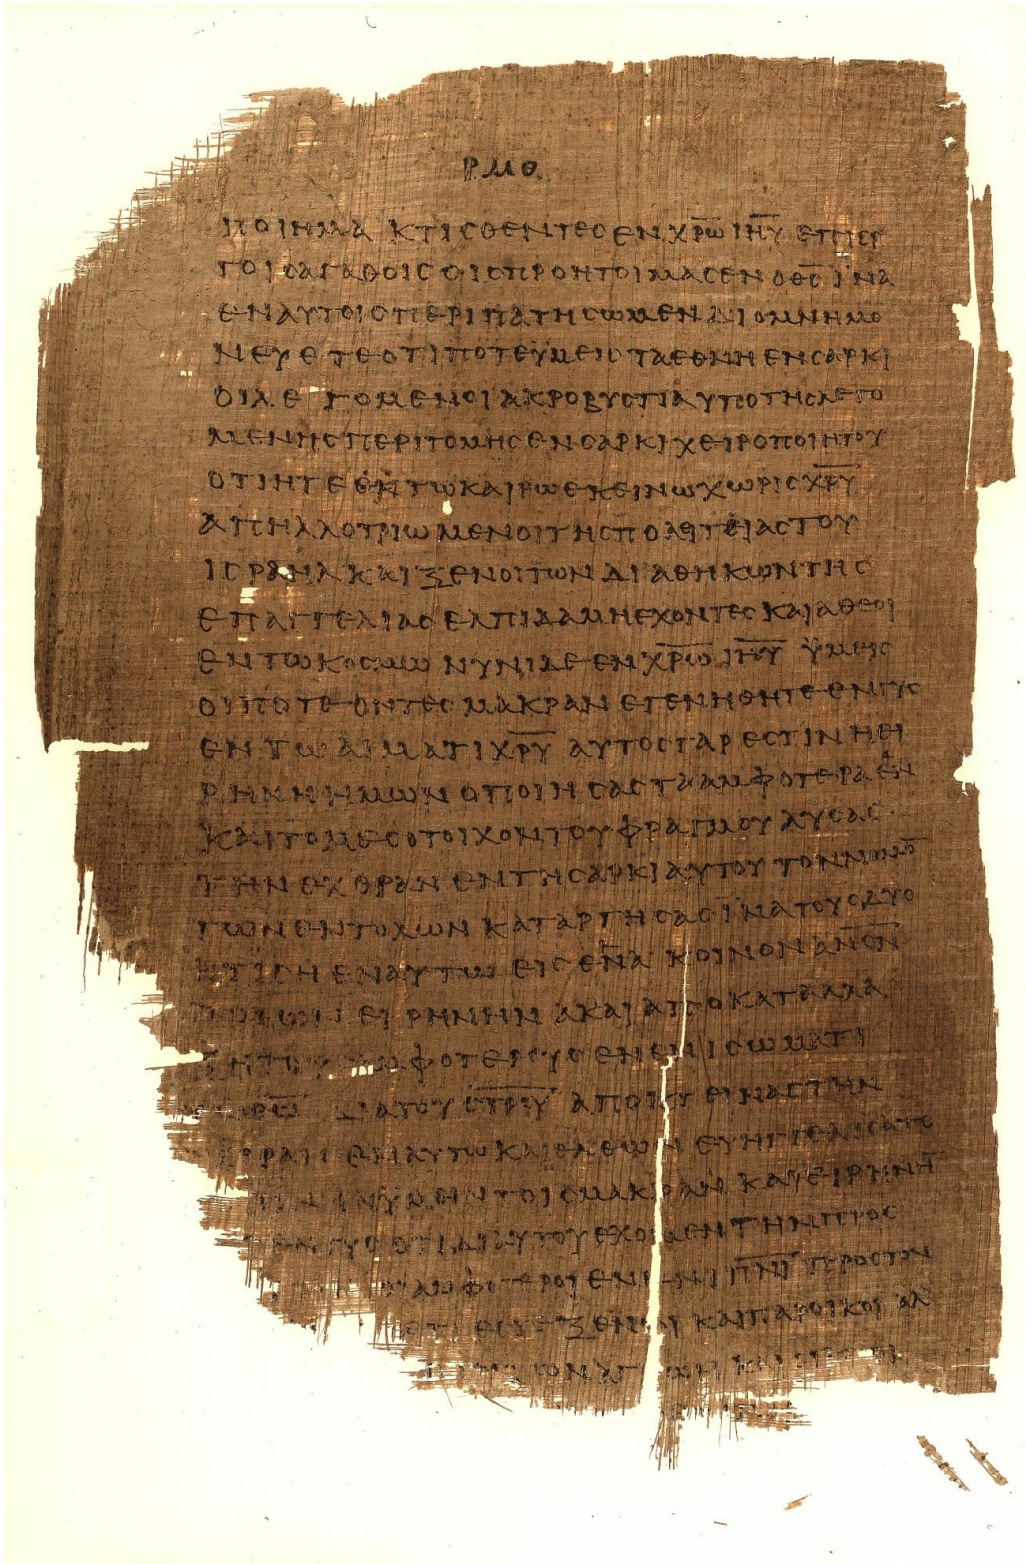 ΡΜΘ
ΠΟΙΗΜΑ ΚΤΙϹΘΕΝΤΕϹ ΕΝ ΧΡΩ ΙΗΥ ΕΠΙ ΕΡ
ΓΟΙϹ ΑΓΑΘΟΙϹ ΟΙϹ ΠΡΟΗΤΟΙΜΑϹΕΝ Ο ΘϹ ΙΝΑ
ΕΝ ΑΥΤΟΙϹ ΠΕΡΙΠΑΤΗϹΩΜΕΝ ΔΙΟ ΜΝΗΜΟ
ΝΕΥΕΤΕ ΟΤΙ ΠΟΤΕ ΫΜΕΙϹ ΤΑ ΕΘΝΗ ΕΝ ϹΑΡΚΙ
ΟΙ ΛΕΓΟΜΕΝΟΙ ΑΚΡΟΒΥϹΤΙΑ ΥΠΟ ΤΗϹ ΛΕΓΟ
ΜΕΝΗϹ ΠΕΡΙΤΟΜΗϹ ΕΝ ϹΑΡΚΙ ΧΕΙΡΟΠΟΙΗΤΟΥ
ΟΤΙ ΗΤΕ ΕΝ ΤΩ ΚΑΙΡΩ ΕΚΕΙΝΩ ΧΩΡΙϹ ΧΡΥ
ΑΠΗΛΛΟΤΡΙΩΜΕΝΟΙ ΤΗϹ ΠΟΛΕΙΤΕΙΑϹ ΤΟΥ
ΙϹΡΑΗΛ ΚΑΙ ΞΕΝΟΙ ΤΩΝ ΔΙΑΘΗΚΩΝ ΤΗϹ
ΕΠΑΓΓΕΛΙΑϹ ΕΛΠΙΔΑ ΜΗ ΕΧΟΝΤΕϹ ΚΑΙ ΑΘΕΟΙ
ΕΝ ΤΩ ΚΟϹΜΩ ΝΥΝΙ ΔΕ ΕΝ ΧΡΩ ΙΗΥ ΫΜΕΙϹ
ΟΙ ΠΟΤΕ ΟΝΤΕϹ ΜΑΚΡΑΝ ΕΓΕΝΗΘΗΤΕ ΕΝΓΥϹ
ΕΝ ΤΩ ΑΙΜΑΤΙ ΧΡΥ ΑΥΤΟϹ ΓΑΡ ΕϹΤΙΝ Η ΕΙ
ΡΗΝΗ ΗΜΩΝ Ο ΠΟΙΗϹΑϹ ΤΑ ΑΜΦΟΤΕΡΑ ΕΝ
ΚΑΙ ΤΟ ΜΕϹΟΤΟΙΧΟΝ ΤΟΥ ΦΡΑΓΜΟΥ ΛΥϹΑϹ
ΤΗΝ ΕΧΘΡΑΝ ΕΝ ΤΗ ϹΑΡΚΙ ΑΥΤΟΥ ΤΟΝ ΝΟΜΟ
ΤΩΝ ΕΝΤΟΛΩΝ ΚΑΤΑΡΓΗϹΑϹ ΙΝΑ ΤΟΥϹ ΔΥΟ
ΚΤΙϹΗ ΕΝ ΑΥΤΩ ΕΙϹ ΕΝΑ ΚΟΙΝΟΝ ΑΝΟΝ
ΠΟΙΩΝ ΕΙΡΗΝΗΝ ΚΑΙ ΑΠΟΚΑΤΑΛΛΑ
ΞΗ ΤΟΥϹ ΑΜΦΟΤΕΡΟΥϹ ΕΝ ΕΝΙ ϹΩΜΑΤΙ
ΔΙΑ ΤΟΥ ϹΤΡΟΥ ΑΠΟΚΤΕΙΝΑϹ ΤΗΝ
ΘΡΑΝ ΕΝ ΑΥΤΩ ΚΑΙ ΕΛΘΩΝ ΕΥΗΓΓΕΛΙϹΑΤΟ
ΗΝ ΥΜΕΙΝ ΤΟΙϹ ΜΑΚΡΑΝ ΚΑΙ ΕΙΡΗΝΗ
ΓΥϹ ΟΤΙ ΔΙ ΑΥΤΟΥ ΕΧΟΜΕΝ ΤΗΝ ΠΡΟϹ
ΟΙ ΑΜΦΟΤΕΡΟΙ ΕΝ ΕΝΙ ΠΝΙ ΠΡΟϹ ΤΟΝ
ΞΕΝΟΙ ΚΑΙ ΠΑΡΟΙΚΟΙ ΑΛ
ΤΩΝ ΑΓΙΩΝ ΚΑΙ